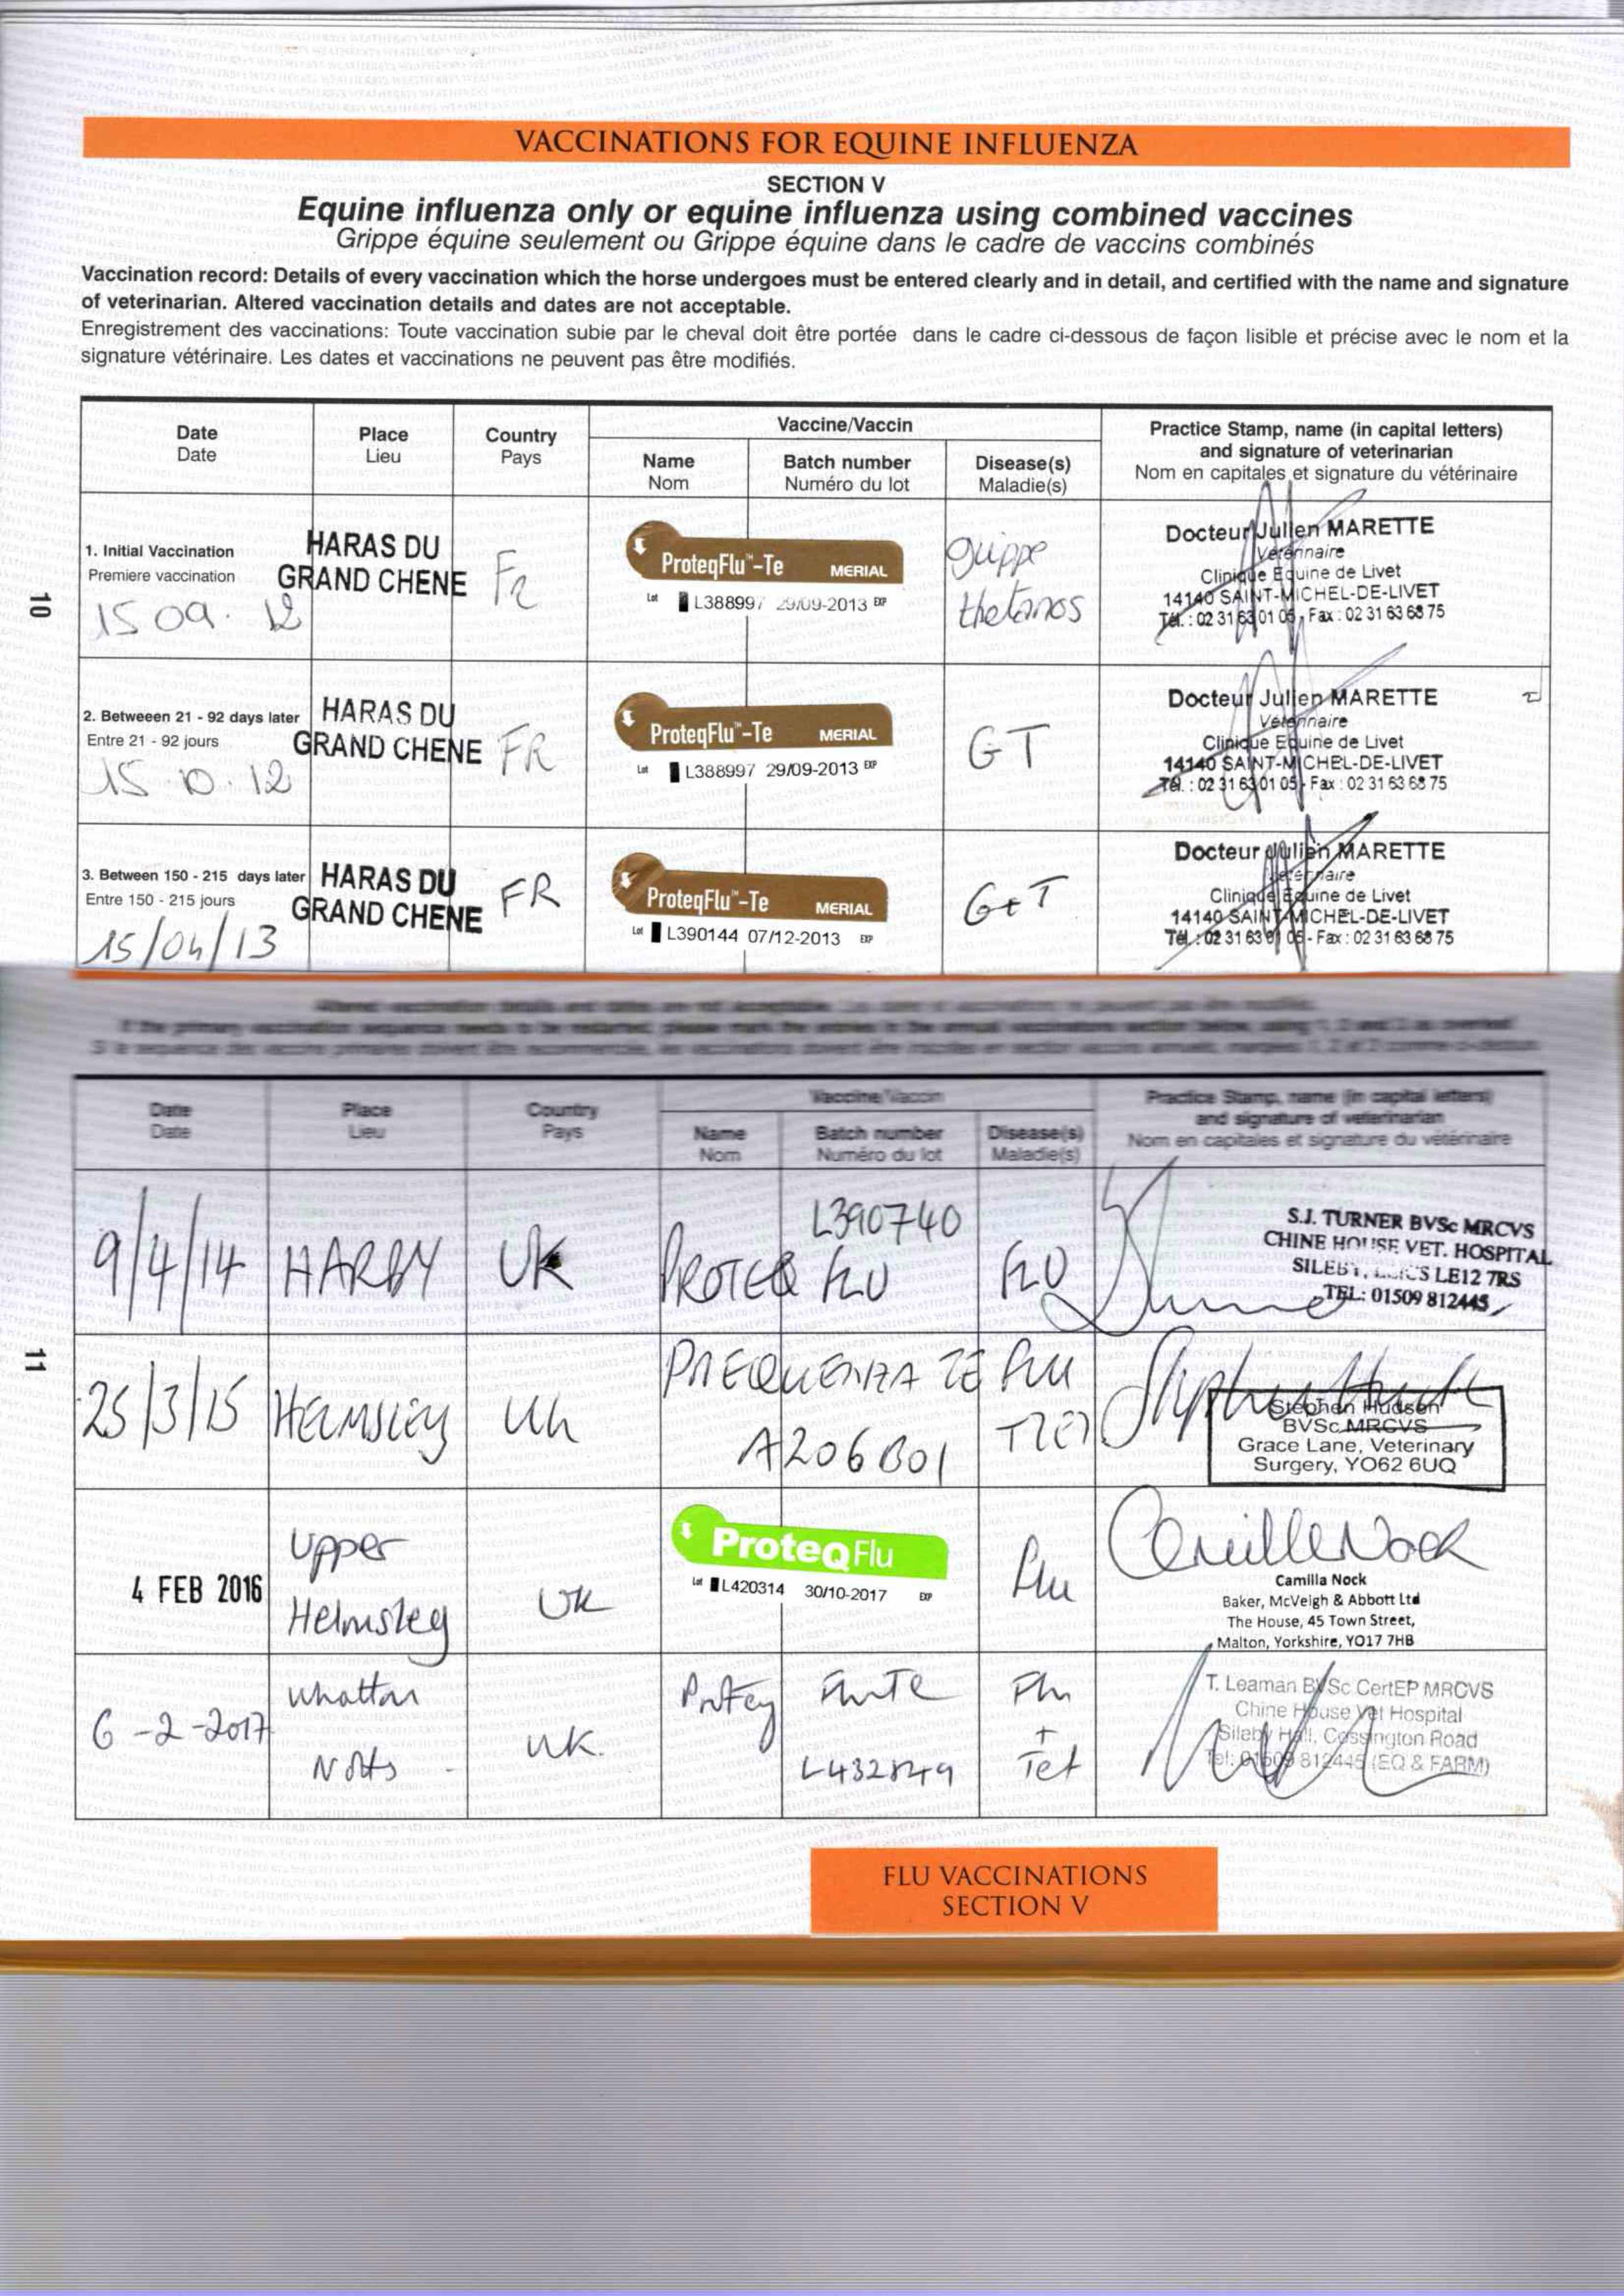 VACCINATIONS FOR EQUINE INFLUENZA
SECTION V
Equine influenza only or equine influenza using combined vaccines
Grippe équine seulement ou Grippe équine dans le cadre de vaccins combinés
Vaccination record: Details of every vaccination which the horse undergoes must be entered clearly and in detail, and certified with the name and signature
of veterinarian. Altered vaccination details and dates are not acceptable.
Enregistrement des vaccinations: Toute vaccination subie par le cheval doit être portée dans le cadre ci-dessous de façon lisible et précise avec le nom et la
signature vétérinaire. Les dates et vaccinations ne peuvent pas être modifiés.
Date
Date
Place
Lieu
Country
Pays
Vaccine/Vaccin
Name
Nom
Batch number
Numéro du lot
Disease(s)
Maladie(s)
Practice Stamp, name (in capital letters)
and signature of veterinarian
Nom en capitales et signature du vétérinaire
10
1. Initial Vaccination
Premiere vaccination
15 09. 12
HARAS DU
GRAND CHENE
FR
ProteqFlu™-Te MERIAL
Lot L388997 29/09-2013 EXP
Grippe
thetanos
Docteur Julien MARETTE
Vétérinaire
Clinique Equine de Livet
14140 SAINT-MICHEL-DE-LIVET
Tél. : 02 31 63 01 05 - Fax : 02 31 63 68 75
2. Betweeen 21 - 92 days later
Entre 21 - 92 jours
15.10.12
HARAS DU
GRAND CHENE
FR
ProteqFlu™-Te MERIAL
Lot L388997 29/09-2013 EXP
GT
Docteur Julien MARETTE
Vétérinaire
Clinique Equine de Livet
14140 SAINT-MICHEL-DE-LIVET
Tél. : 02 31 63 01 05 - Fax : 02 31 63 68 75
3. Between 150 - 215 days later
Entre 150 - 215 jours
15/04/13
HARAS DU
GRAND CHENE
FR
ProteqFlu™-Te MERIAL
Lot L390144 07/12-2013 EXP
G+T
Docteur Julien MARETTE
Vétérinaire
Clinique Equine de Livet
14140 SAINT-MICHEL-DE-LIVET
Tél. : 02 31 63 01 05 - Fax : 02 31 63 68 75
Altered vaccination details and dates are not acceptable.
If the primary vaccination sequence needs to be restarted, please mark the entries in the annual vaccinations section below, using 1, 2 and 3 as overleaf
Date
Date
Place
Lieu
Country
Pays
Vaccine/Vaccin
Name
Nom
Batch number
Numéro du lot
Disease(s)
Maladie(s)
Practice Stamp, name (in capital letters)
and signature of veterinarian
Nom en capitales et signature du vétérinaire
11
9/4/14
HARBY
UK
PROTEQ FLU
L390740
FLU
S.J. TURNER BVSc MRCVS
CHINE HOUSE VET. HOSPITAL
SILEBY, LEICS LE12 7RS
TEL: 01509 812445
25/3/15
HELMSLEY
UK
PREQUENZA TE
A206B01
FLU
Stephen Hudson
BVSc MRCVS
Grace Lane, Veterinary
Surgery, YO62 6UQ
4 FEB 2016
Upper
Helmsley
UK
ProteqFlu
Lot L420314 30/10-2017 EXP
Flu
Camilla Nock
Camilla Nock
Baker, McVeigh & Abbott Ltd
The House, 45 Town Street,
Malton, Yorkshire, YO17 7HB
6-2-2017
Whatton
Notts
UK.
Proteq FluTe
L432849
Flu
+
Tet
T. Leaman BVSc CertEP MRCVS
Chine House Vet Hospital
Sileby Hall, Cossington Road
Tel: 01509 812445 (EQ & FARM)
FLU VACCINATIONS
SECTION V